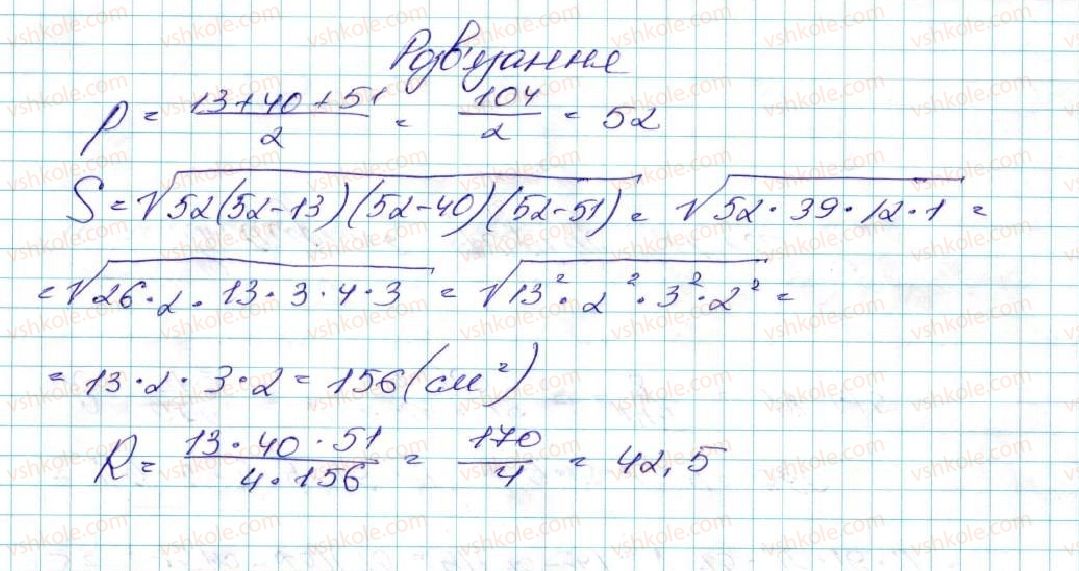 Розв'язання
p = (13+40+51)/2 = 104/2 = 52
S = √(52(52-13)(52-40)(52-51)) = √(52·39·12·1) =
= √(26·2·13·3·4·3) = √(13²·2²·3²·2²) =
= 13·2·3·2 = 156 (см²)
R = (13·40·51)/(4·156) = 170/4 = 42,5
vshkole.com